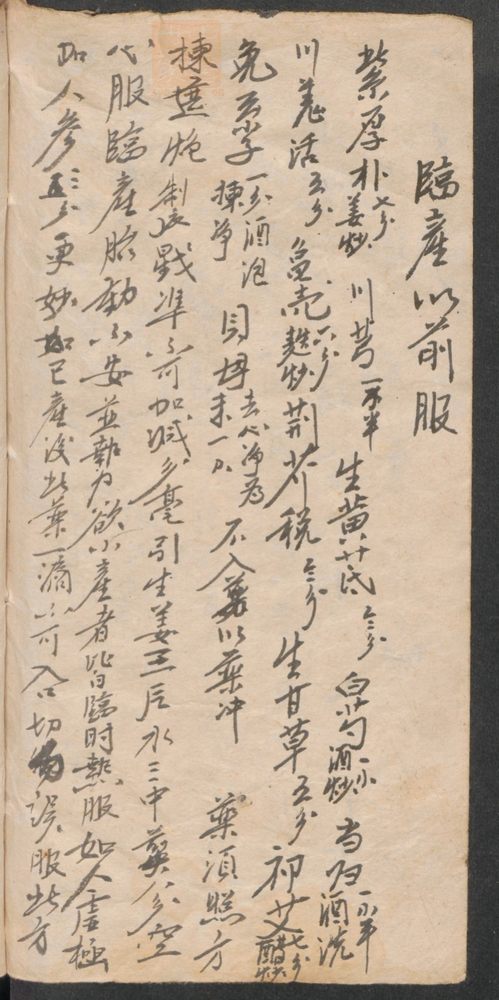 臨產以前服
紫厚朴七分姜炒 川芎一㆐半 生黃芪三分 白芍一㆐酒炒 当归一㆐半酒洗
川羌活五分 魚壳六分麩炒 荆芥稅三分 生甘草五分 祁艾七分醋炒
兔云子一㆐酒泡揀净 貝母去心净為末一㆐ 不入煎以葉冲 葯須照方
揀选炮製戥準不可加減分毫引生姜三片水二中煎八分空
心服臨產胎動不安並勢为欲小產者皆臨时熱服如人虛極
加人參三五分更妙如已產後此葉一滴不可入口切勿誤服此方